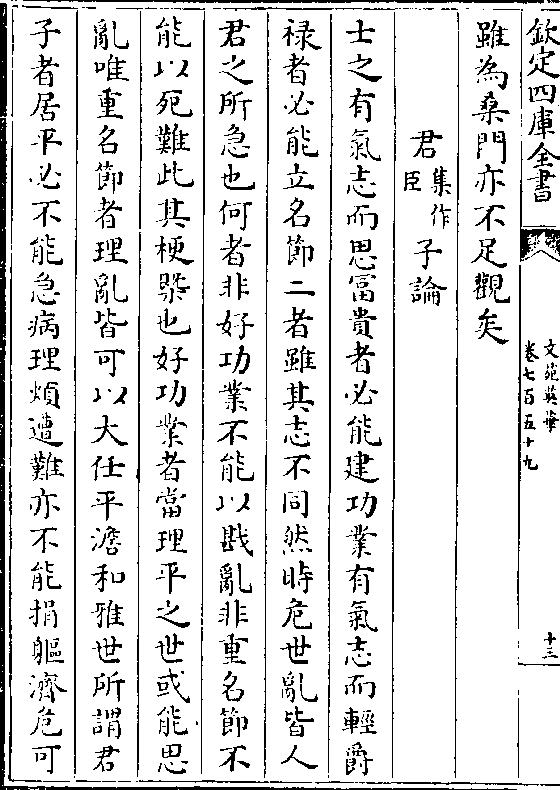 欽定四庫全書
文苑英華
卷七百五十九
十三
雖為桑門亦不足觀矣
君集作臣子論
士之有氣志而思富貴者必能建功業有氣志而輕爵
祿者必能立名節二者雖其志不同然時危世亂皆人
君之所急也何者非好功業不能以戡亂非重名節不
能以死難此其梗槩也好功業者當理平之世或能思
亂唯重名節者理亂皆可以大任平澹和雅世所謂君
子者居平必不能急病理煩遭難亦不能捐軀濟危可